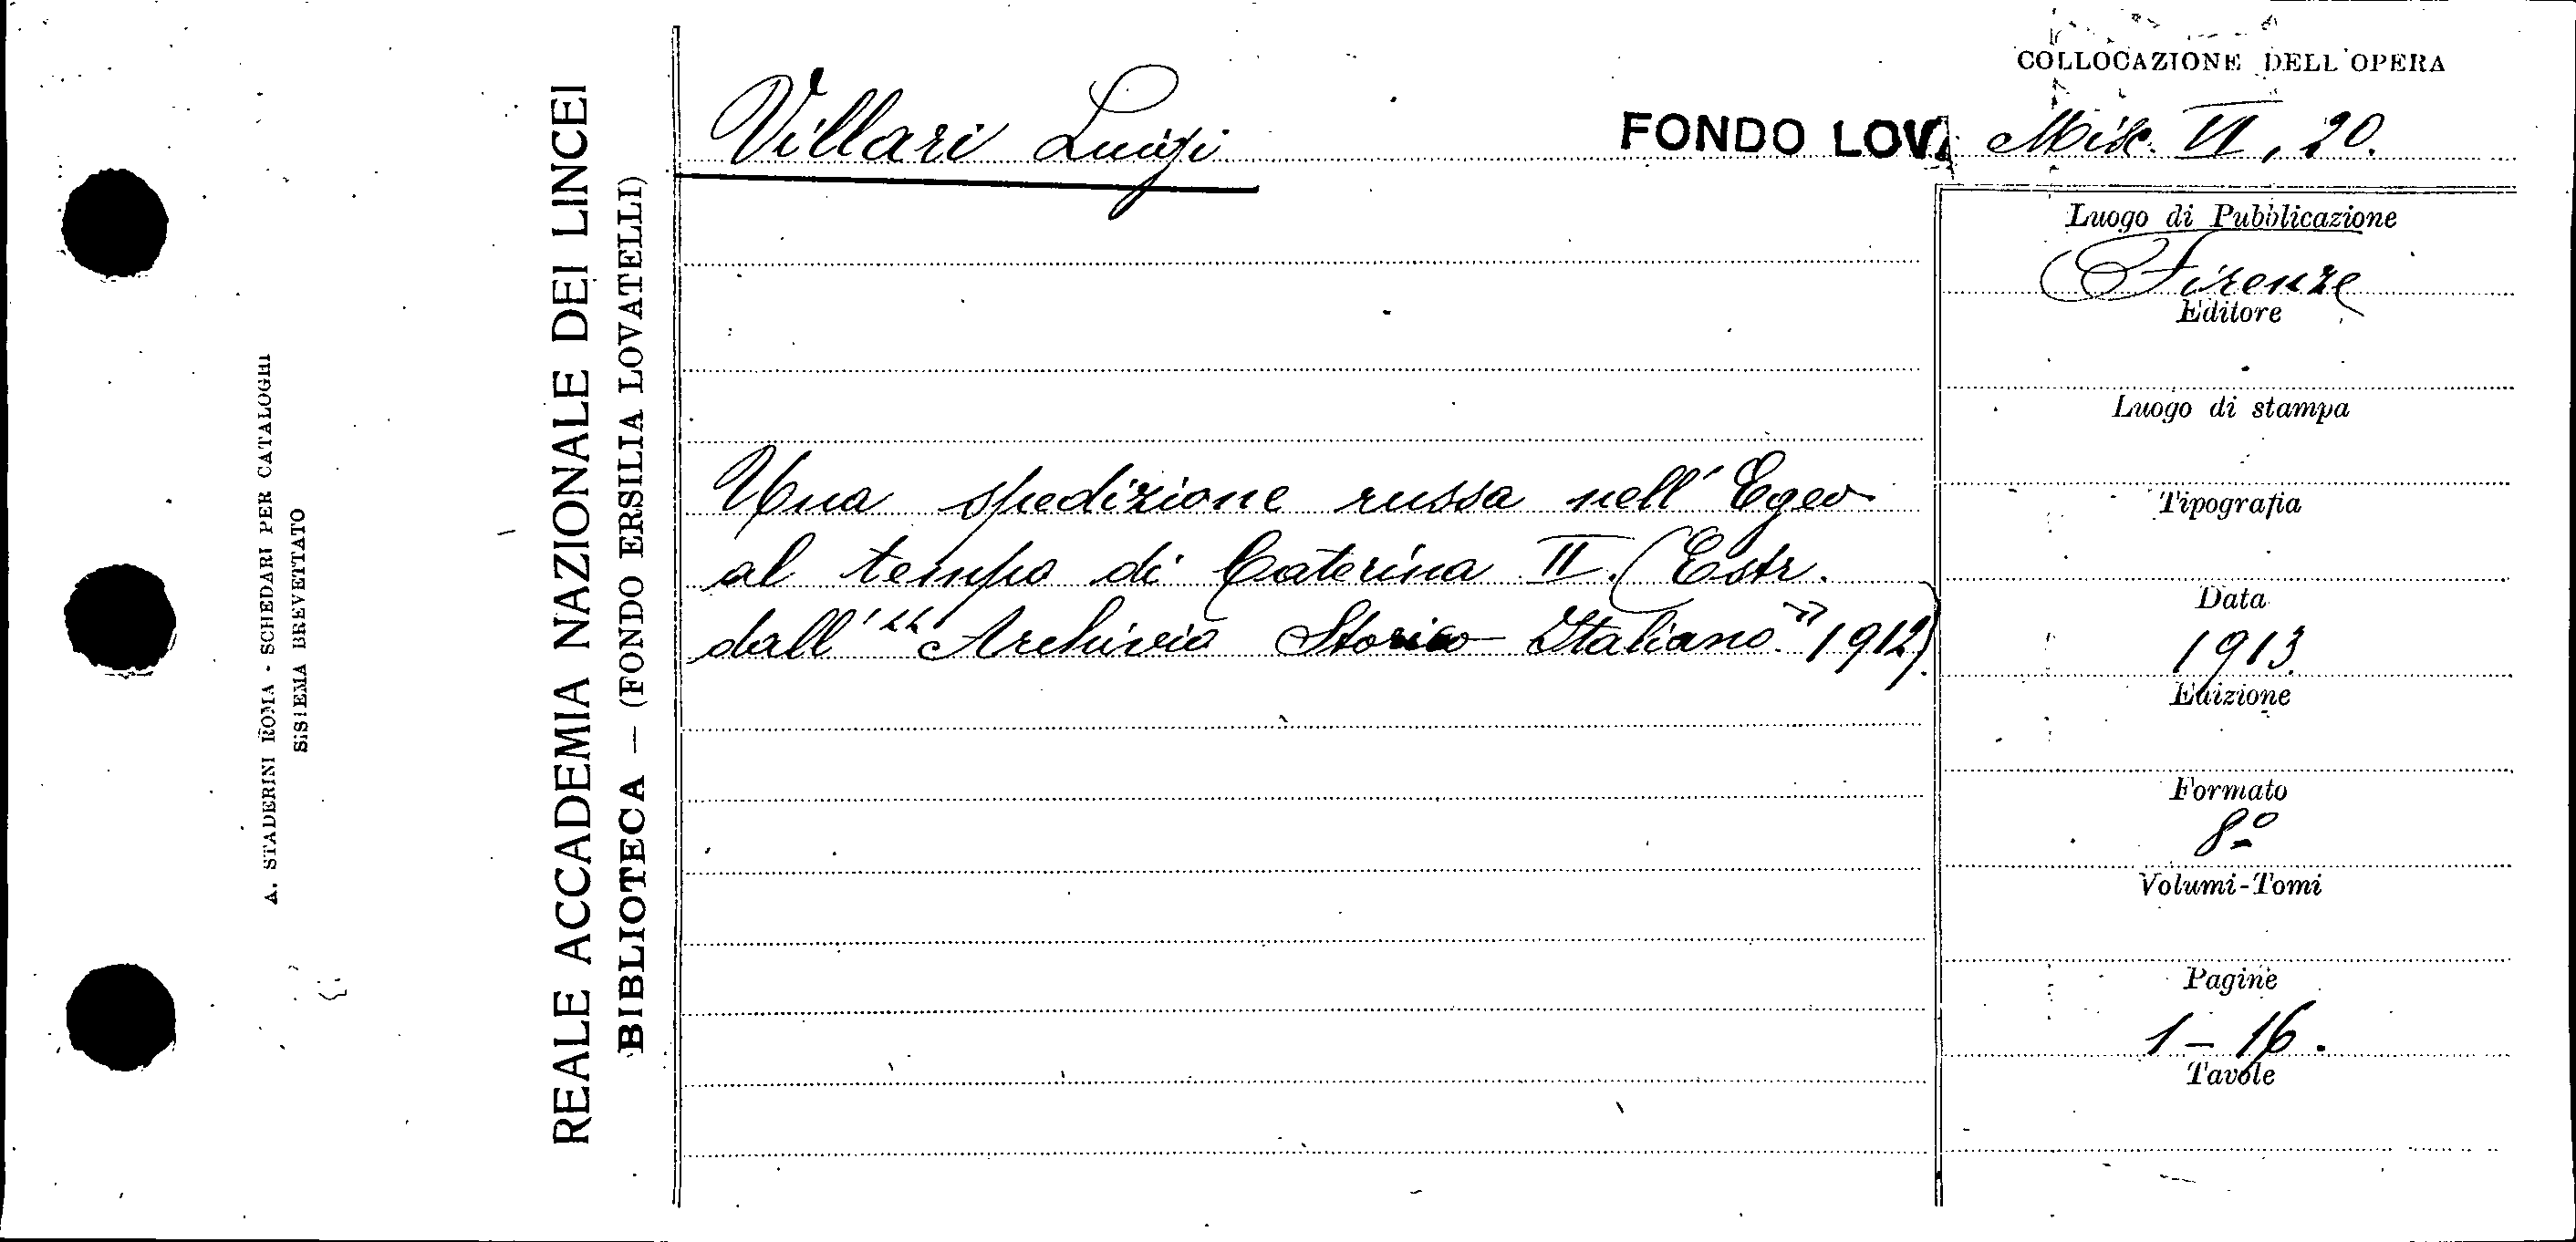 A. STADERINI ROMA - SCHEDARI PER CATALOGHI
SISTEMA BREVETTATO
REALE ACCADEMIA NAZIONALE DEI LINCEI
BIBLIOTECA — (FONDO ERSILIA LOVATELLI)
Villari Luigi
FONDO LOVA
Una spedizione russa nell' Egeo
al tempo di Caterina II. (Estr.
dall' "Archivio Storico Italiano" 1912).
COLLOCAZIONE DELL'OPERA
Misc. VI, 20.
Luogo di Pubblicazione
Firenze
Editore
Luogo di stampa
Tipografia
Data
1913
Edizione
Formato
8º
Volumi-Tomi
Pagine
1 - 16.
Tavole